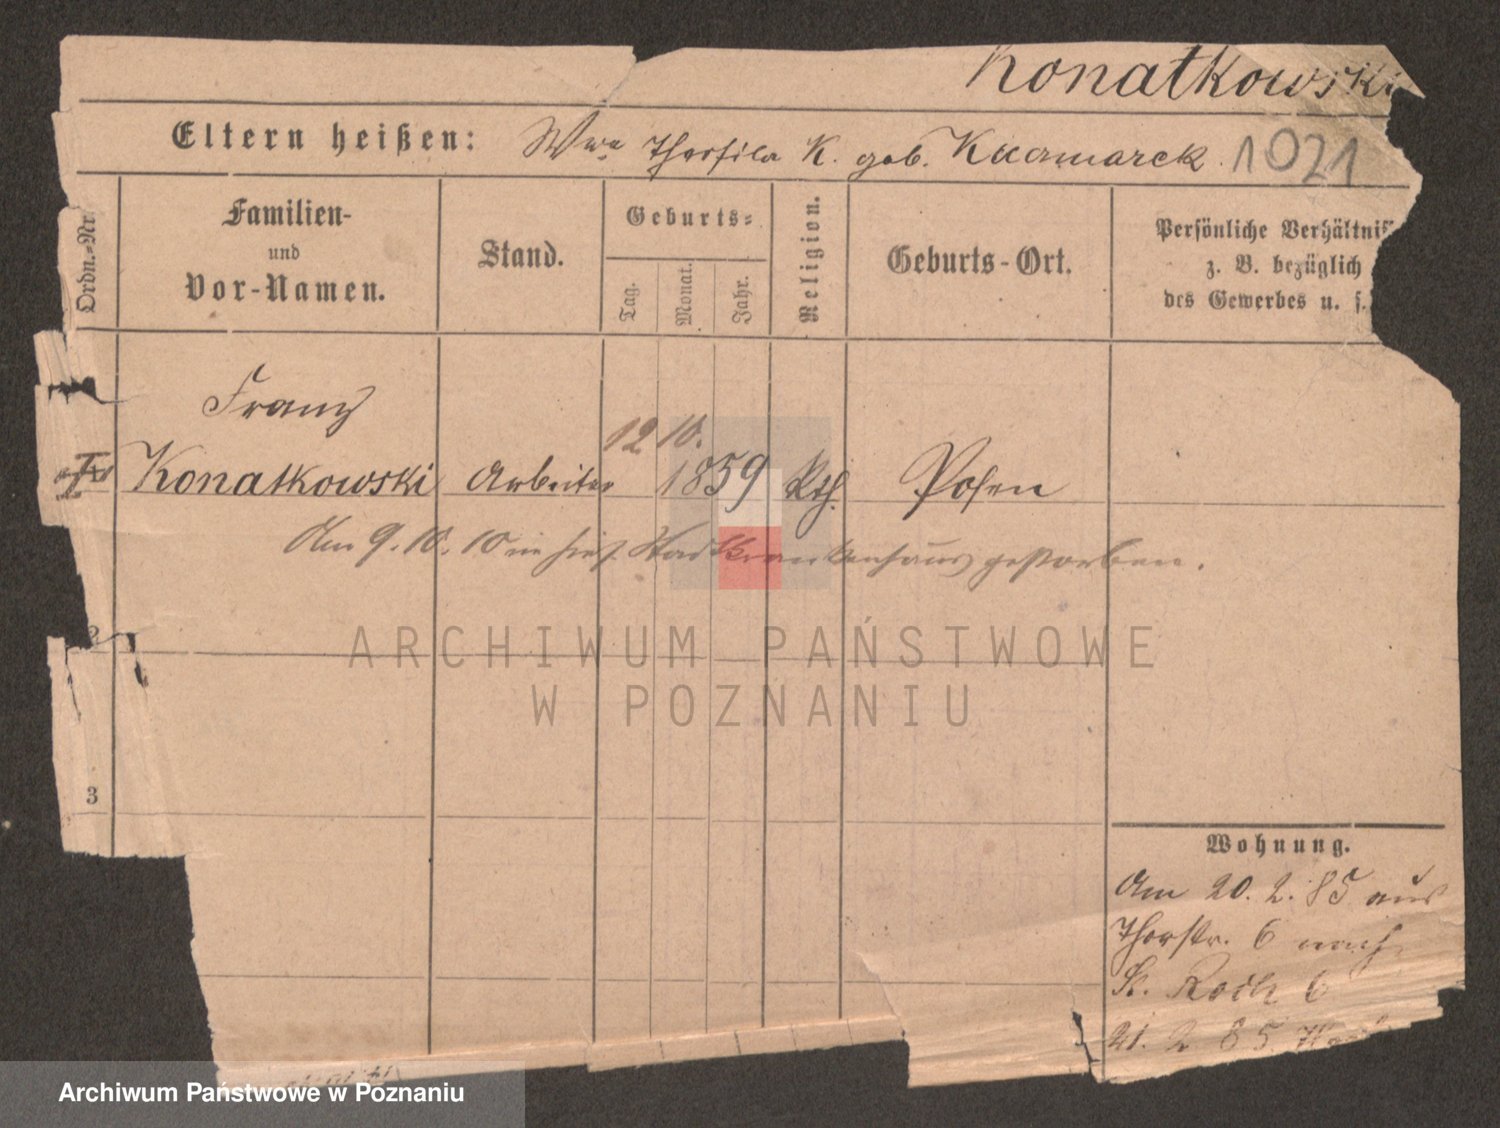 Konatkowski
Eltern heißen: Wwe Theofila K. geb. Kucmarek 1021
Ordn.-Nr.
Familien-
und
Vor-Namen.
Stand.
Geburts-
Tag.
Monat.
Jahr.
Religion.
Geburts-Ort.
Persönliche Verhältniss
z. B. bezüglich
des Gewerbes u. s.
Franz
12 10.
Konatkowski Arbeiter 1859 Kth. Posen
Am 9.10.10 im hies. Stadtkrankenhaus gestorben.
ARCHIWUM PAŃSTWOWE
W POZNANIU
2
3
Wohnung.
Am 20.2.85 aus
Thorstr. 6 nach
St. Roch 6
21. 2 85
Archiwum Państwowe w Poznaniu